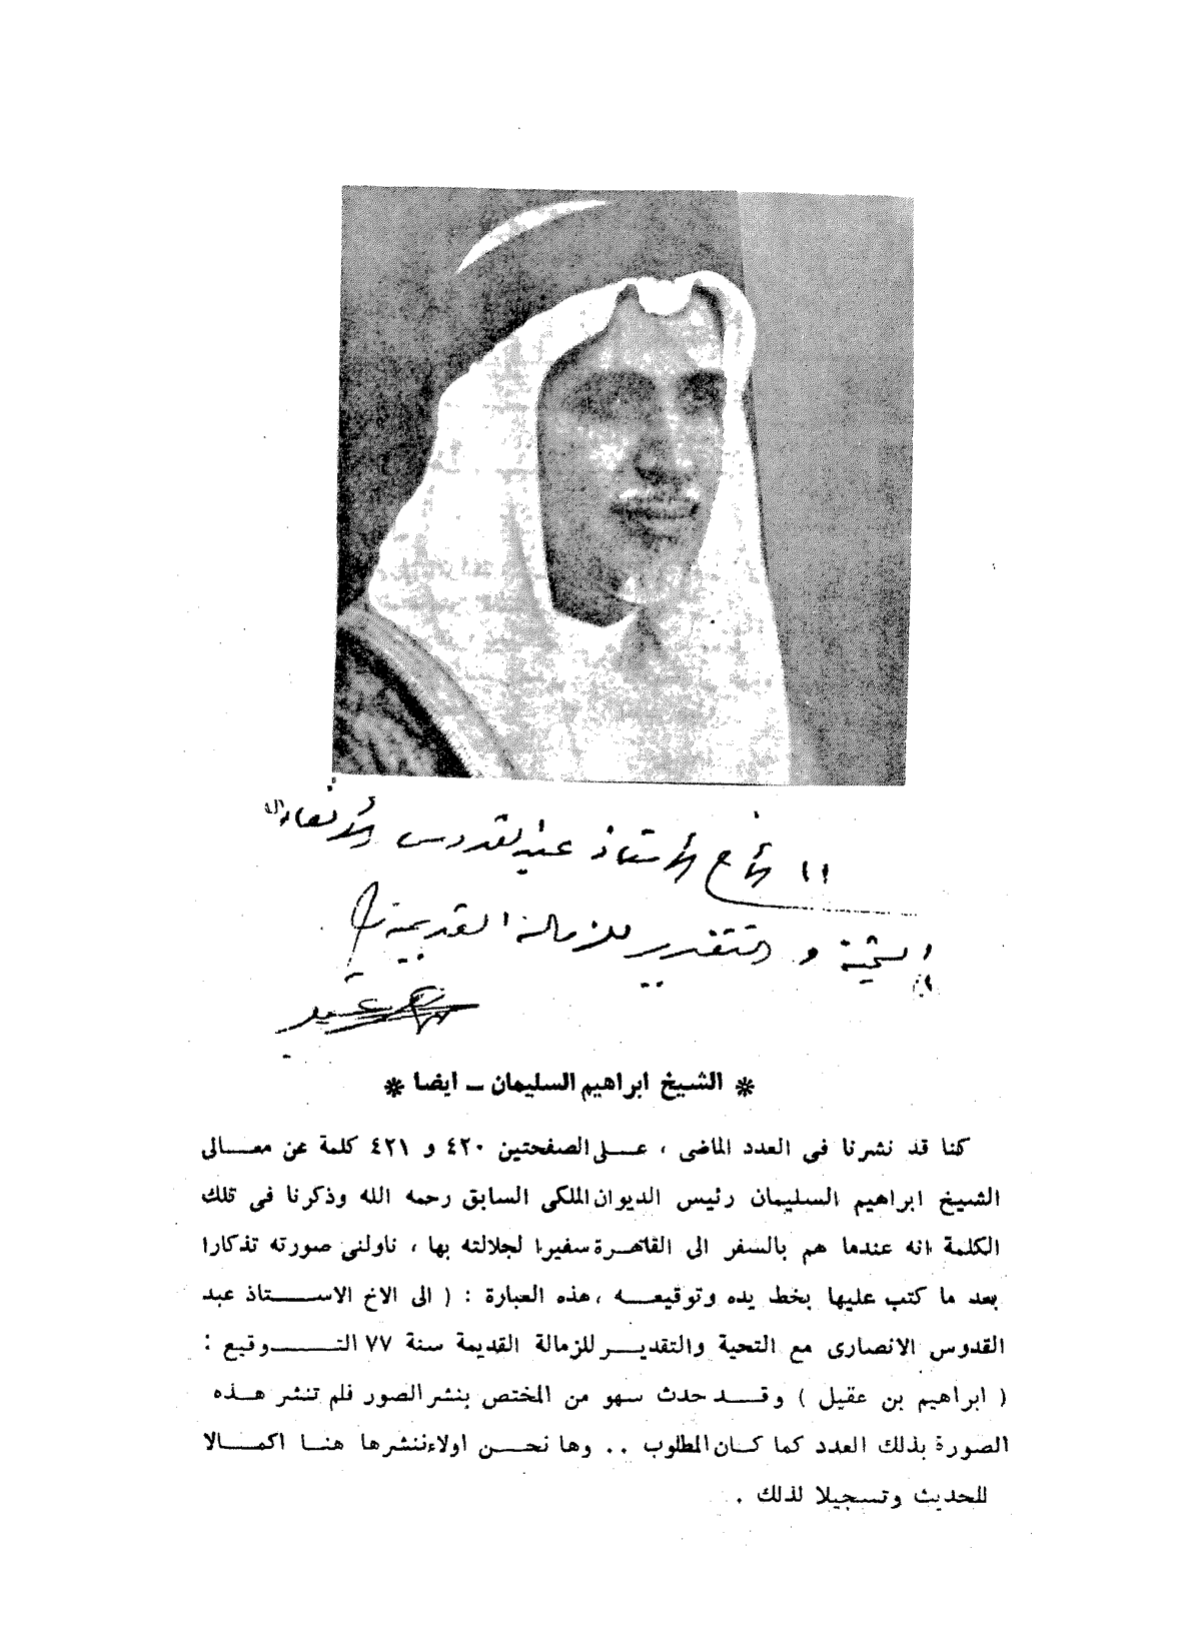 الى الأخ الأستاذ عبدالقدوس الأنصاري
مع التحية والتقدير للزمالة القديمة
* الشيخ ابراهيم السليمان ــ ايضا *
كنا قد نشرنا فى العدد الماضى ، عــلى الصفحتين ٤٢٠ و ٤٢١ كلمة عن معــالى
الشيخ ابراهيم السليمان رئيس الديوان الملكى السابق رحمه الله وذكرنا فى تلك
الكلمة انه عندما هم بالسفر الى القاهـرة سفيرا لجلالته بها ، ناولنى صورته تذكارا
بعد ما كتب عليها بخط يده وتوقيعــه ، هذه العبارة : ( الى الاخ الاســـتاذ عبد
القدوس الانصارى مع التحية والتقديــر للزمالة القديمة سنة ٧٧ التــــوقيع :
( ابراهيم بن عقيل ) وقــد حدث سهو من المختص بنشر الصور فلم تنشر هــذه
الصورة بذلك العدد كما كــان المطلوب .. وها نحــن اولاء ننشرها هنــا اكمــالا
للحديث وتسجيلا لذلك .